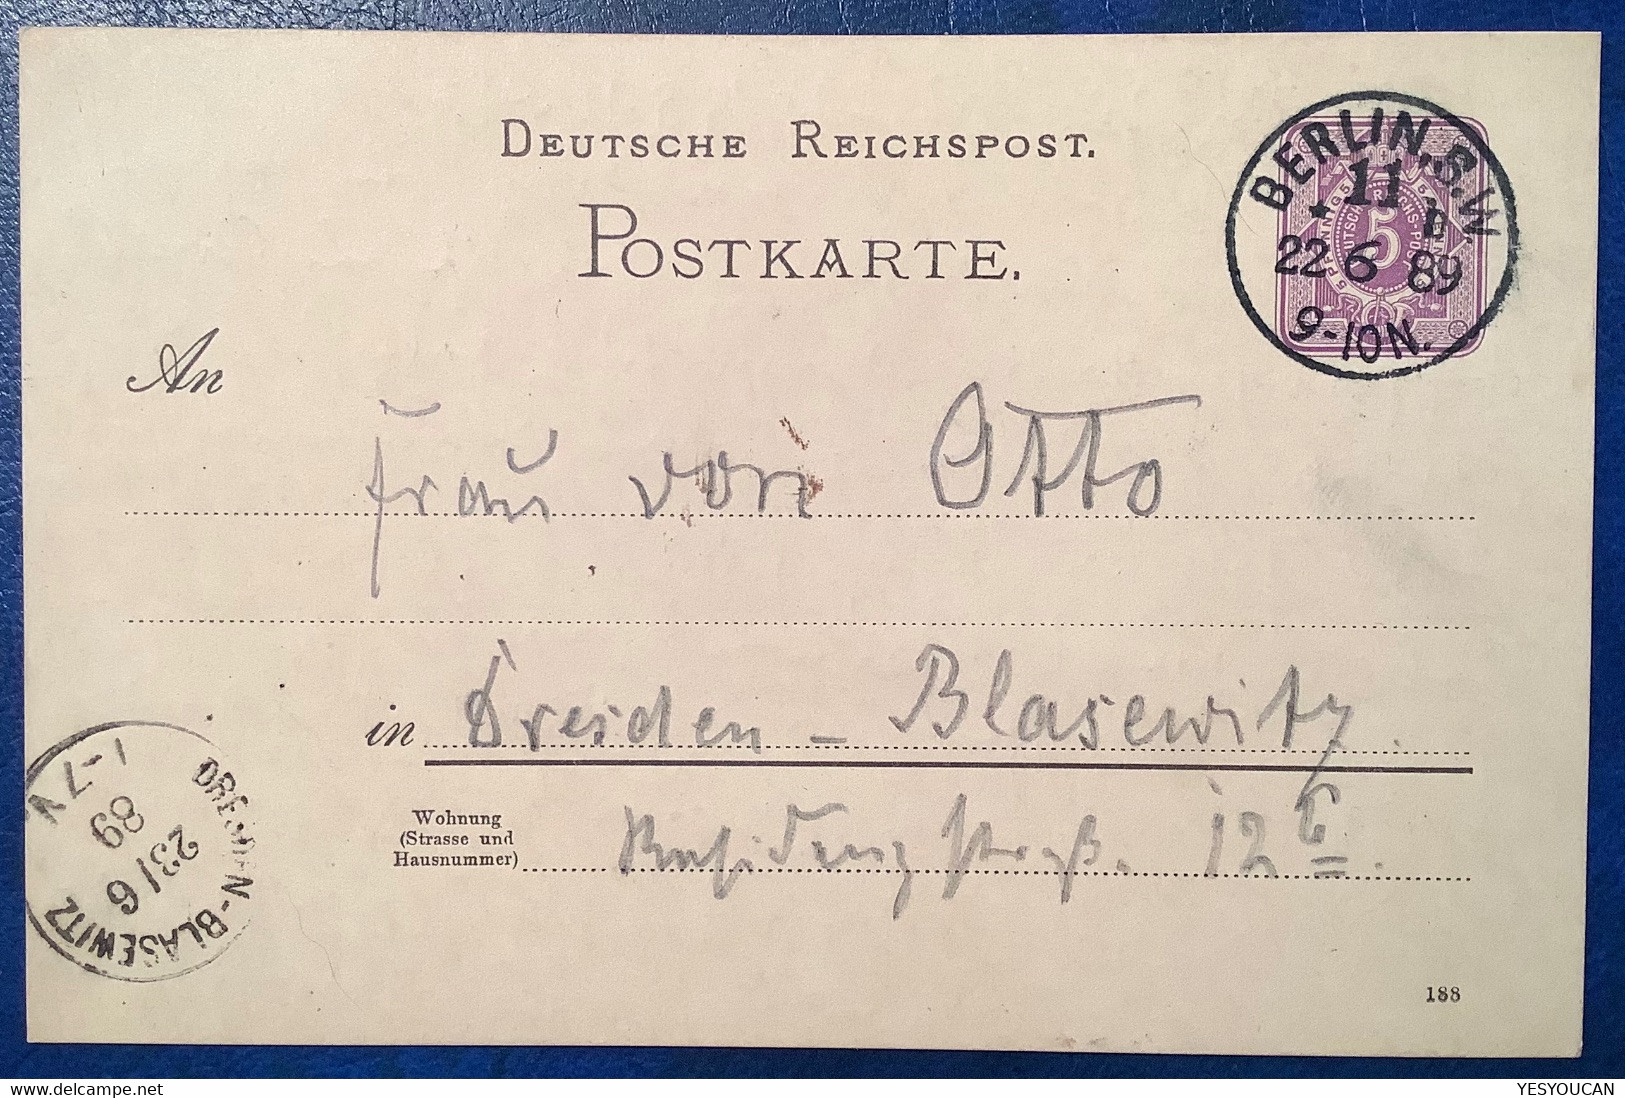 DEUTSCHE REICHSPOST.
POSTKARTE.
BERLIN, S.W.
11
22 6 89
9-10N.
5
An
Frau von Otto
in Dresden - Blasewitz.
Wohnung
(Strasse und
Hausnummer)
Residenzstraß. 12
DRESDEN-BLASEWITZ
23/6
89
7 V
188
YESYOUCAN